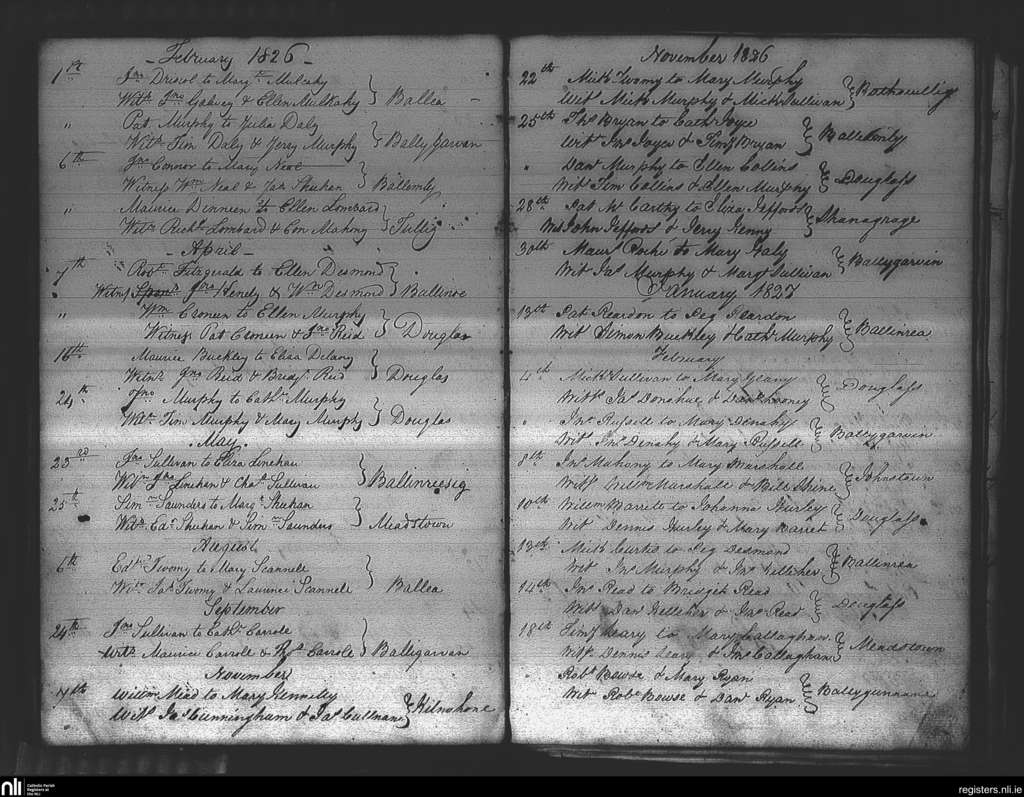 - February 1826 -
1st Jno Driscol to Mary Mulcahy
Witn. Jno Galvey & Ellen Mulkahy } Ballea -
" Pat. Murphy to Julia Daly
Witn. Tim Daly & Jerry Murphy } Ballygarvan
6th Jno Connor to Mary Neal
Witness Wm Neal & Jas Shuhan }
" Maurice Dinneen to Ellen Lombard
Witn. Richd. Lombard & Con Mahony } Tullig
- April -
7th Robt. Fitzgerald to Ellen Desmond
Witness Jno Henely & Wm Desmond } Ballinoe
" Wm Croneen to Ellen Murphy
Witness Pat Croneen & Jno Reid } Douglas
16th Maurice Buckley to Eliza Delany
Witns. Jno Reid & Bridgt. Reid } Douglas
24th Jno Murphy to Cathn. Murphy
Witn. Tim Murphy & Mary Murphy } Douglas
May
23rd Jno Sullivan to Eliza Linehan
Witn Jno Linehan & Chas. Sullivan } Ballinreesig
25th Sim. Saunders to Margt. Shuhan
Witn. Ed. Shuhan & Sim. Saunders } Meadstown
August
6th Edd. Twomy to Mary Scannele
Witn Jas. Twomy & Laurence Scannele } Ballea
September
24th Jno Sullivan to Cathn. Carrole
Witn. Maurice Carrole & Thos. Carrole } Balligarvan
November
17th Willm Mead to Mary
Witt Jas Cunningham & Jas Cullnane } Kilnahone
November 1826
22th Michl Twomy to Mary Murphy
Wit Michl Murphy & Michl Sullivan }
25th Thos Bryan to Cath Joyce
Wit Jno Joyce & Timy Bryan }
" Danl Murphy to Ellen Collins
Wit Tim Collins & Ellen Murphy } Douglass
28th Pat McCarthy to Eliza Jeffords
Wit John Jeffords & Jerry Kenny } Shanagrage
30th Maur Roche to Mary Haly
Wit Jas Murphy & Margt Sullivan } Ballygarvin
January 1827
13th Pat Reardon to Peg Reardon
Wit Simon Buckley & Cath Murphy } Ballinrea
February
4th Michl Sullivan to Mary Geany
Witt Jas Donahue & Danl } Douglass
" Jno Russell to Mary Denahy
Wit Jno Denahy & Mary Russell } Ballygarvin
8th Jno Mahony to Mary Marshall
Witt Willm Marshall & Bill Shine } Johnstown
10th Willm Barrite to Johanna Hurley
Wit Dennis Hurley & Mary Barret } Douglass
13th Michl Curtis to Peg Desmond
Wit Jno Murphy & Jno Kelliher } Ballinrea
14th Jno Read to Bridget Read
Witt Danl Kelleher & Jno Read } Douglass
18th Timy Leary to Mary Callaghann
Witt Dennis Leary & Jno Callaghann } Meadstown
Robt Bowse & Mary Ryan
Wit Robt Bowse & Danl Ryan } Ballygunnana
nli Catholic Parish Registers at the NLI
registers.nli.ie